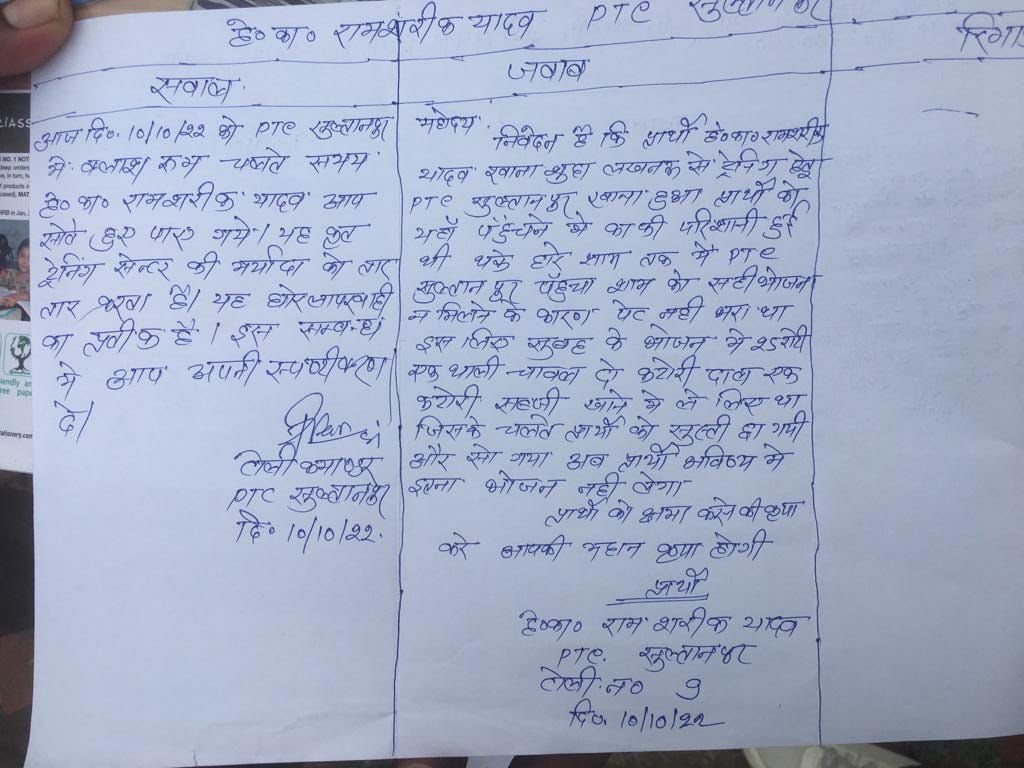 हे० का० रामशरीक यादव PTC सुल्तानपुर
सवाल
आज दि० 10/10/22 को PTC सुल्तानपुर
मे क्लाश रुम चलते समय
हे० का० रामशरीक यादव आप
सोते हुए पाए गये। यह कृत
ट्रेनिंग सेन्टर की मर्यादा को तार
तार करता है। यह घोर लापरवाही
का प्रतीक है। इस सम्बन्ध
मे आप अपनी स्पष्टीकरण
दे।
टोली कमाण्डर
PTC सुल्तानपुर
दि० 10/10/22.
जबाब
महोदय
निवेदन है कि प्रार्थी हे०का० रामशरीक
यादव रवाना शुदा लखनऊ से ट्रेनिंग हेतू
PTC सुल्तानपुर रवाना हुआ प्रार्थी को
यहाँ पँहुचने मे काफी परिशानी हुई
थी थके हारे शाम तक मै PTC
सुल्तानपुर पँहुचा शाम को सही भोजन
न मिलने के कारण पेट नही भरा था
इस लिए सुबह के भोजन मे 25 रोटी
एक थाली चावल दो कटोरी दाल एक
कटोरी सब्जी खाने मे ले लिए था
जिसके चलते प्रार्थी को सुस्ती छा गयी
और सो गया अब प्रार्थी भविष्य मे
इतना भोजन नही लेगा
प्रार्थी को क्षमा करने की कृपा
करे आपकी महान कृपा होगी
प्रार्थी
हे०का० राम शरीक यादव
PTC. सुल्तानपुर
टोली. न० 9
दि० 10/10/22